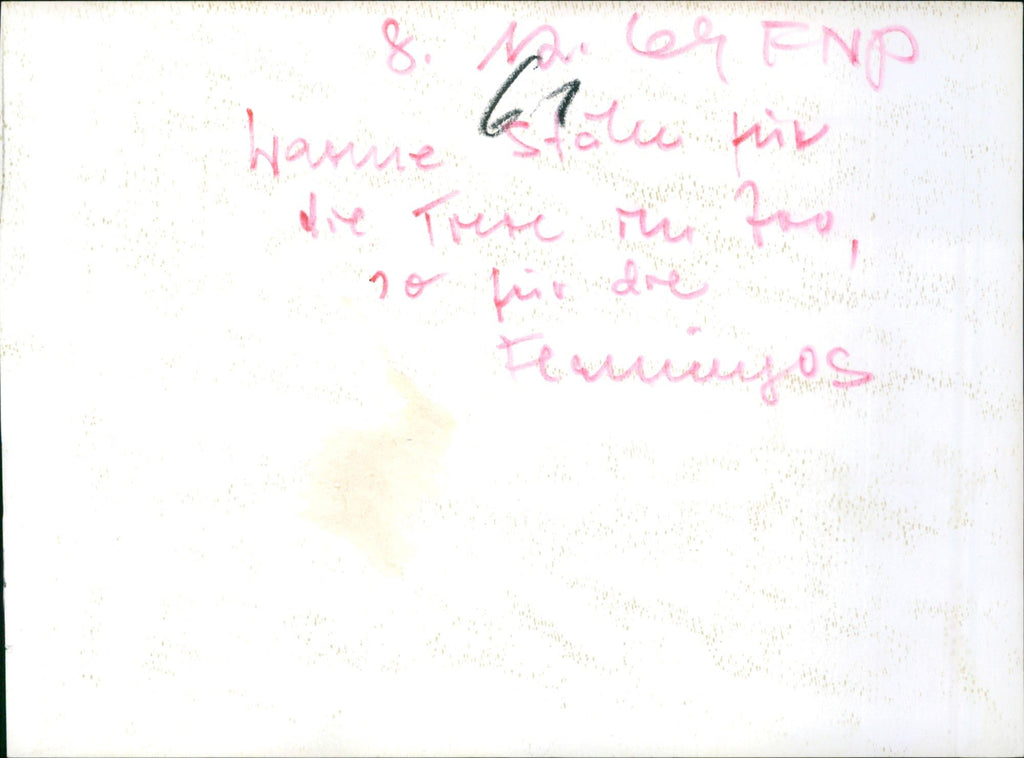 8. 12. 69 FNP
61
Warme Ställe für
die Tiere im Zoo,
so für die
Flamingos